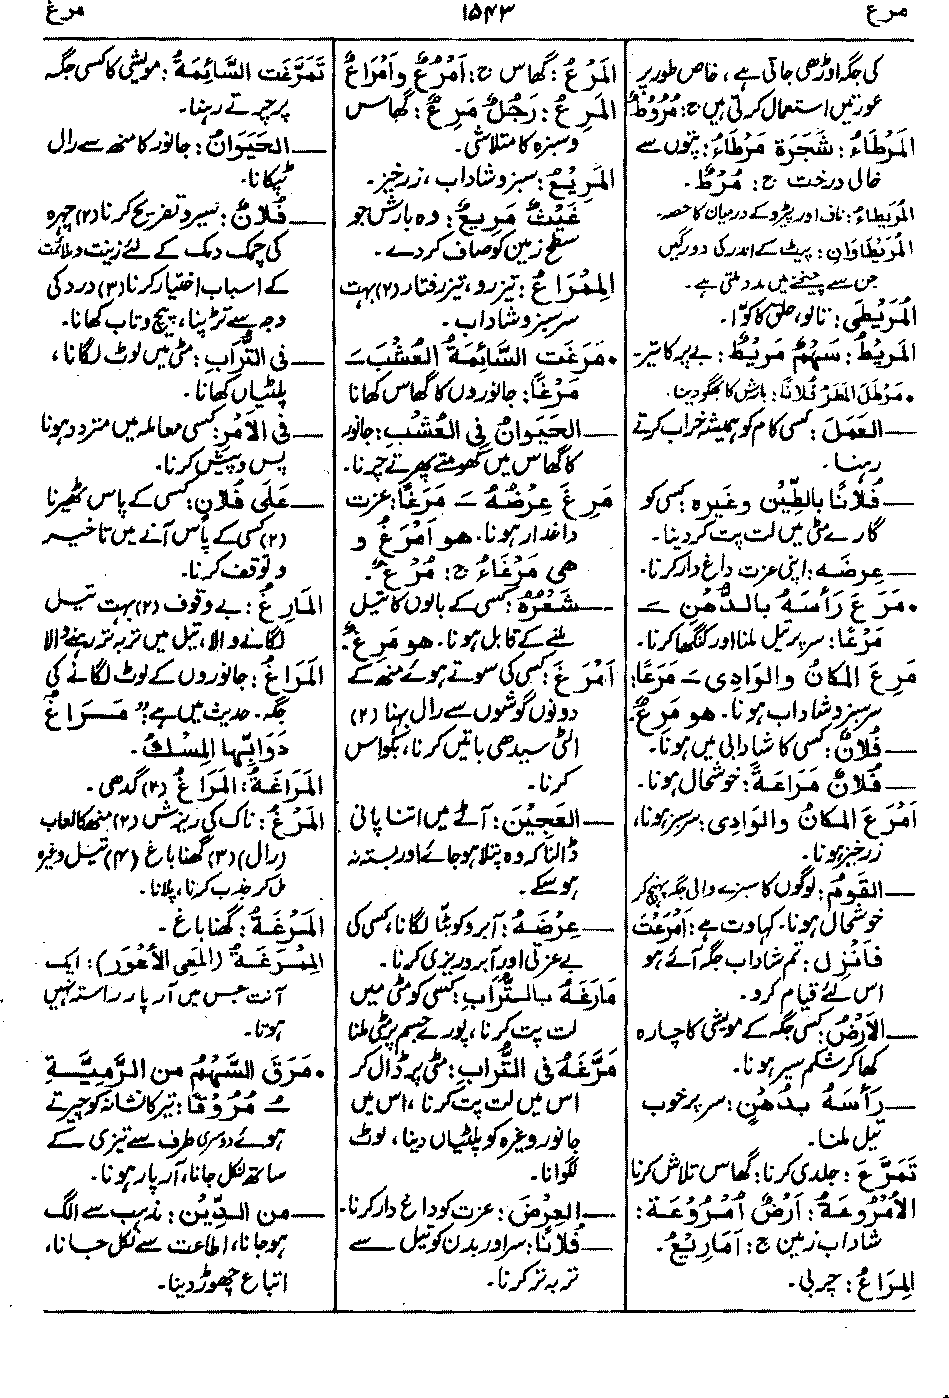 مرع
١٥٤٣
مرغ
کی جگہ اوڑھی جاتی ہے، خاص طور پر
عورتیں استعمال کرتی ہیں ج: مُرُوْطٌ
المَرْطَاءُ: شَجَرَةٌ مَرْطَاءُ: پتّوں سے
خالی درخت ج: مُرْطٌ۔
المُرَيْطَاءُ: ناف اور پیڑو کے درمیان کا حصہ۔
المُرَيْطَاوَانِ: پیٹ کے اندر کی دو رگیں
جن سے چیخنے میں مدد ملتی ہے۔
المُرَيْطَى: تالو، حلق کا کوّا۔
المَرِيْطُ: سَهْمٌ مَرِيْطٌ: بے پر کا تیر۔
• مَرْطَلَ المَطَرُ فُلَانًا: بارش کا بھگو دینا۔
— العَمَلَ: کسی کام کو ہمیشہ خراب کرتے
رہنا۔
— فُلَانًا بِالطِّيْنِ وغیرہ: کسی کو
گارے مٹی میں لت پت کر دینا۔
— عِرْضَه: اپنی عزت داغ دار کرنا۔
• مَرَعَ رَأْسَهُ بِالدُّهْنِ —َ
مَرْعًا: سر پر تیل ملنا اور کنگھا کرنا۔
مَرِعَ المَكَانُ والوَادِى —َ مَرَعًا:
سرسبز و شاداب ہونا۔ هو مَرِعٌ۔
— فُلَانٌ: کسی کا شادابی میں ہونا۔
— فُلَانٌ مَرَاعَةً: خوشحال ہونا۔
اَمْرَعَ المَكَانُ والوَادِى: سرسبز ہونا،
زرخیز ہونا۔
— القَوْمُ: لوگوں کا سبزے والی جگہ پہنچ کر
خوشحال ہونا۔ کہاوت ہے: اَمْرَعْتَ
فَانْزِلْ: تم شاداب جگہ آئے ہو
اس لئے قیام کرو۔
— الاَرْضُ: کسی جگہ کے مویشی کا چارہ
کھا کر شکم سیر ہونا۔
— رَأْسَهُ بِدُهْنٍ: سر پر خوب
تیل ملنا۔
تَمَرَّعَ: جلدی کرنا: گھاس تلاش کرنا
الاُمْرُوْعَةُ: اَرْضٌ اُمْرُوْعَةٌ:
شاداب زمین ج: اَمَارِيْعُ۔
المِرَاعُ: چربی۔
المَرْعُ: گھاس ج: اَمْرُعٌ واَمْرَاعٌ
المَرِعُ: رَجُلٌ مَرِعٌ: گھاس
و سبزہ کا متلاشی۔
المَرِيْعُ: سبز و شاداب، زرخیز۔
غَيْثٌ مَرِيْعٌ: وہ بارش جو
سطح زمین کو صاف کر دے۔
المِمْرَاعُ: تیز رو، تیز رفتار (٢) بہت
سرسبز و شاداب۔
• مَرَغَتِ السَّائِمَةُ العُشْبَ —َ
مَرْغًا: جانوروں کا گھاس کھانا
— الحَيَوَانُ فِى العُشْبِ: جانور
کا گھاس میں گھومتے پھرتے چرنا۔
مَرِغَ عِرْضُهُ —َ مَرَغًا: عزت
داغدار ہونا۔ هو اَمْرَغُ و
هی مَرْغَاءُ ج: مُرْغٌ۔
— شَعْرُهُ: کسی کے بالوں کا تیل
ملنے کے قابل ہونا۔ هو مَرِغٌ۔
اَمْرَغَ: کسی کی سوتے ہوئے منھ کے
دونوں گوشوں سے رال بہنا (٢)
الٹی سیدھی باتیں کرنا، بکواس
کرنا۔
— العَجِيْنَ: آٹے میں اتنا پانی
ڈالنا کہ وہ پتلا ہو جائے اور بستہ نہ
ہو سکے۔
— عِرْضَهُ: آبرو کو بٹّا لگانا، کسی کی
بے عزتی اور آبرو ریزی کرنا۔
مَارَغَهُ بِالتُّرَابِ: کسی کو مٹی میں
لت پت کرنا، پورے جسم پر مٹی ملنا
مَرَّغَهُ فِى التُّرَابِ: مٹی پر ڈال کر
اس میں لت پت کرنا، اس میں
جانور وغیرہ کو پلٹیاں دینا، لوٹ
لگوانا۔
— العِرْضَ: عزت کو داغ دار کرنا۔
— فُلَانًا: سر اور بدن کو تیل سے
تر بہ تر کرنا۔
تَمَرَّغَتِ السَّائِمَةُ: مویشی کا کسی جگہ
پر چرتے رہنا۔
— الحَيَوَانُ: جانور کا منھ سے رال
ٹپکانا۔
— فُلَانٌ: سیر و تفریح کرنا (٢) چہرہ
کی چمک دمک کے لئے زینت و ملائمت
کے اسباب اختیار کرنا (٣) درد کی
وجہ سے تڑپنا، پیچ و تاب کھانا۔
— فِى التُّرَابِ: مٹی میں لوٹ لگانا،
پلٹیاں کھانا۔
— فِى الاَمْرِ: کسی معاملہ میں متردد ہونا
پس و پیش کرنا۔
— عَلَى فُلَانٍ: کسی کے پاس ٹھیرنا
(٢) کسی کے پاس آنے میں تاخیر
و توقف کرنا۔
المَارِغُ: بے وقوف (٢) بہت تیل
لگانے والا، تیل میں تر بہ تر رہنے والا
المَرَاغُ: جانوروں کے لوٹ لگانے کی
جگہ۔ حدیث میں ہے: "مَرَاغُ
دَوَابِّهَا المِسْكُ۔
المَرَاغَةُ: المَرَاغُ (٢) گدھی۔
المَرْغُ: ناک کی ریزش (٢) منھ کا لعاب
(رال) (٣) گھنا باغ (٤) تیل وغیرہ
مل کر جذب کرنا، پلانا۔
المَرْغَةُ: گھنا باغ۔
المِمْرَغَةُ (المِعَى الأَعْوَرُ): ایک
آنت جس میں آر پار راستہ نہیں
ہوتا۔
• مَرَقَ السَّهْمُ مِنَ الرَّمِيَّةِ
—ُ مُرُوْقًا: تیر کا نشانہ کو چیرتے
ہوئے دوسری طرف سے تیزی کے
ساتھ نکل جانا، آر پار ہونا۔
— مِنَ الدِّيْنِ: مذہب سے الگ
ہو جانا، اطاعت سے نکل جانا،
اتباع چھوڑ دینا۔